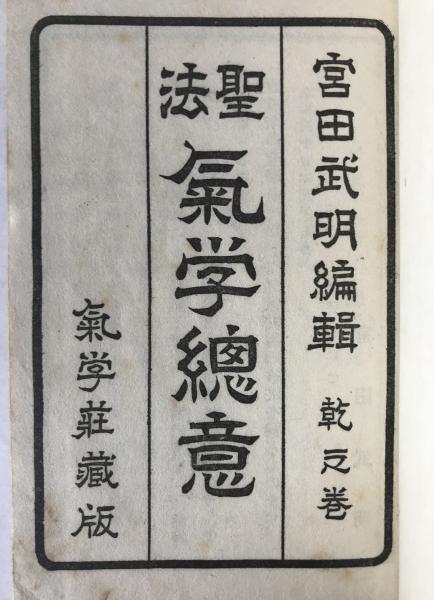 宮田武明編輯 乾之巻
聖法 氣学總意
氣学莊藏版